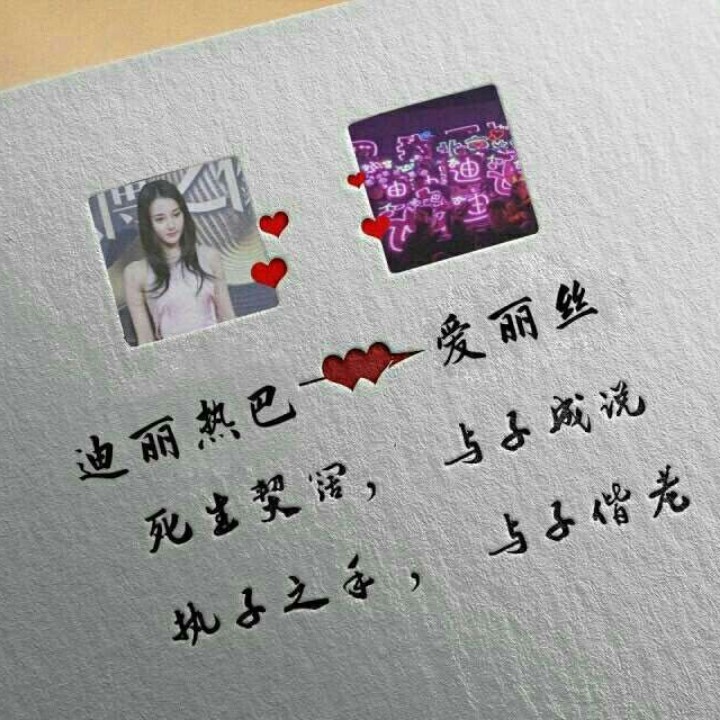 迪丽热巴
爱丽丝
死生契阔,与子成说
执子之手,与子偕老